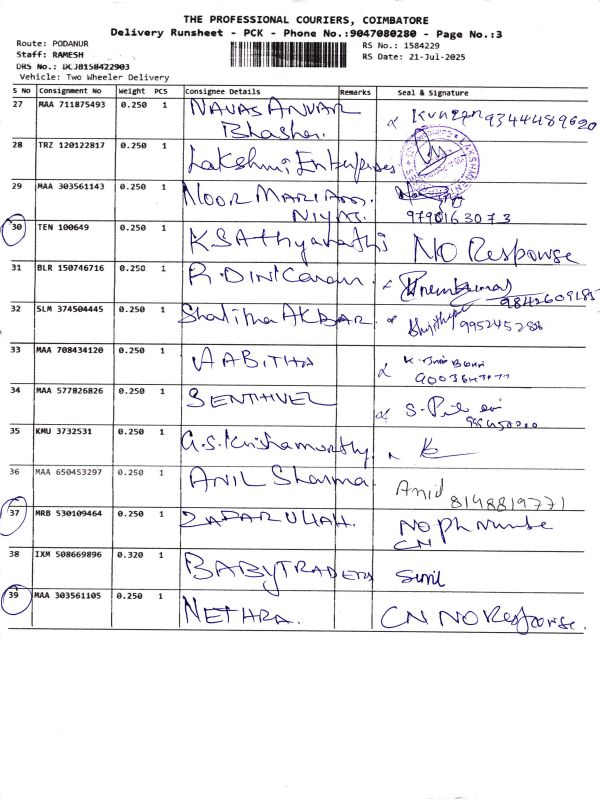 THE PROFESSIONAL COURIERS, COIMBATORE
Delivery Runsheet - PCK - Phone No.:9047080280 - Page No.:3
Route: PODANUR
Staff: RAMESH
DRS No.: DCJB158422903
Vehicle: Two Wheeler Delivery
RS No.: 1584229
RS Date: 21-Jul-2025
S No Consignment No Weight PCS Consignee Details Remarks Seal & Signature
27 MAA 711875493 0.250 1 NAVAS ANVAR 9344489620
Bhasha.
28 TRZ 120122817 0.250 1 Lakshmi Enterprises
29 MAA 303561143 0.250 1 NOOR MARIAM
NIYAS. 9790163073
30 TEN 100649 0.250 1 K.SAthyavathi NO Response
31 BLR 150746716 0.250 1 R.DINICaran
32 SLM 374504445 0.250 1 Shalitha AKBAR 995245286
33 MAA 708434120 0.250 1 AABITHA
34 MAA 577826826 0.250 1 SENTHIVEL
35 KMU 3732531 0.250 1 G.S.Krishamurthy.
36 MAA 650453297 0.250 1 ANIL Sharma 8148819771
37 MRB 530109464 0.250 1 ZAFARULLAH. NO Ph Numbe
CN
38 IXM 508669896 0.320 1 BABYTRADERS Sunil
39 MAA 303561105 0.250 1 NETHRA. CN NO Response.